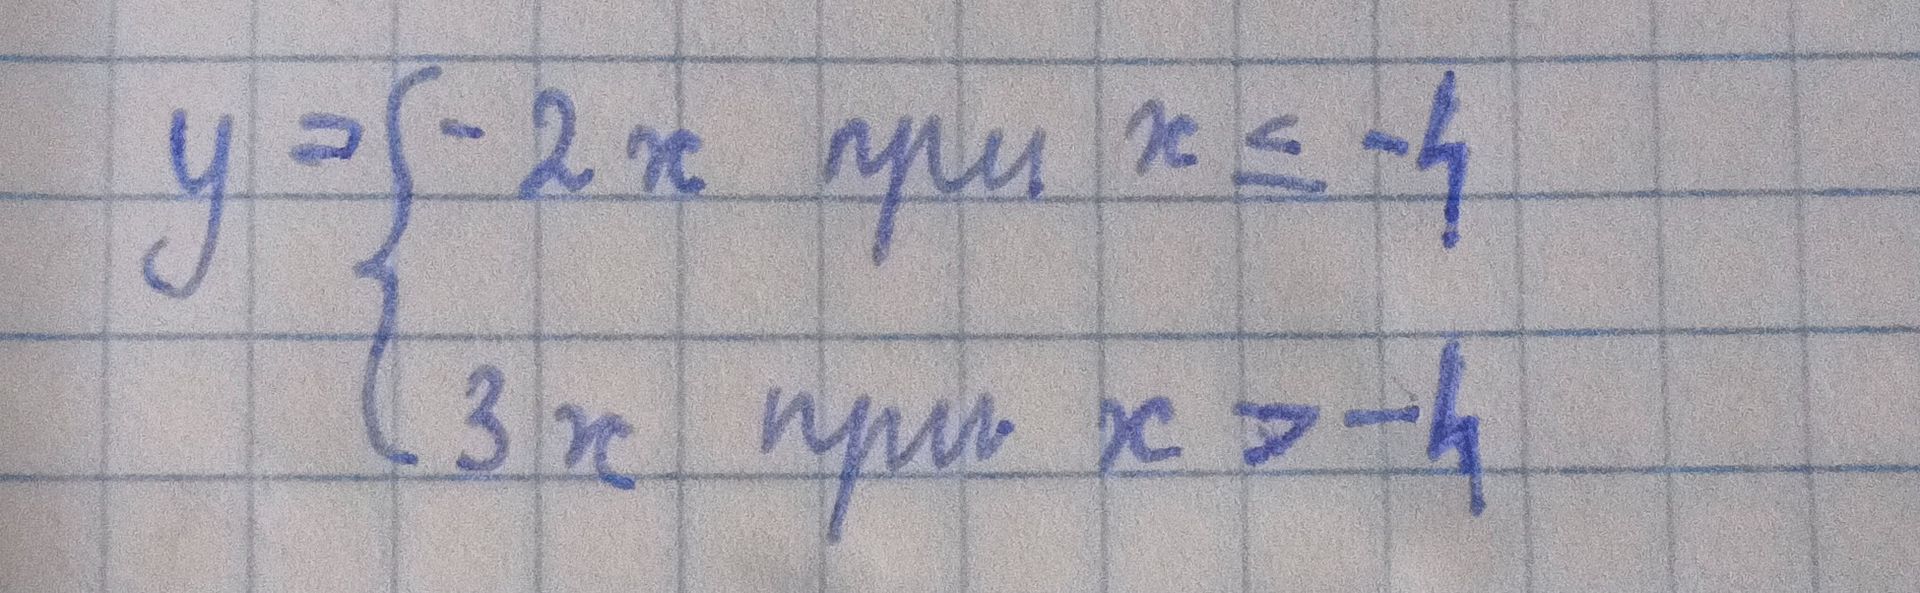 y = { -2x при x ≤ -4
3x при x > -4